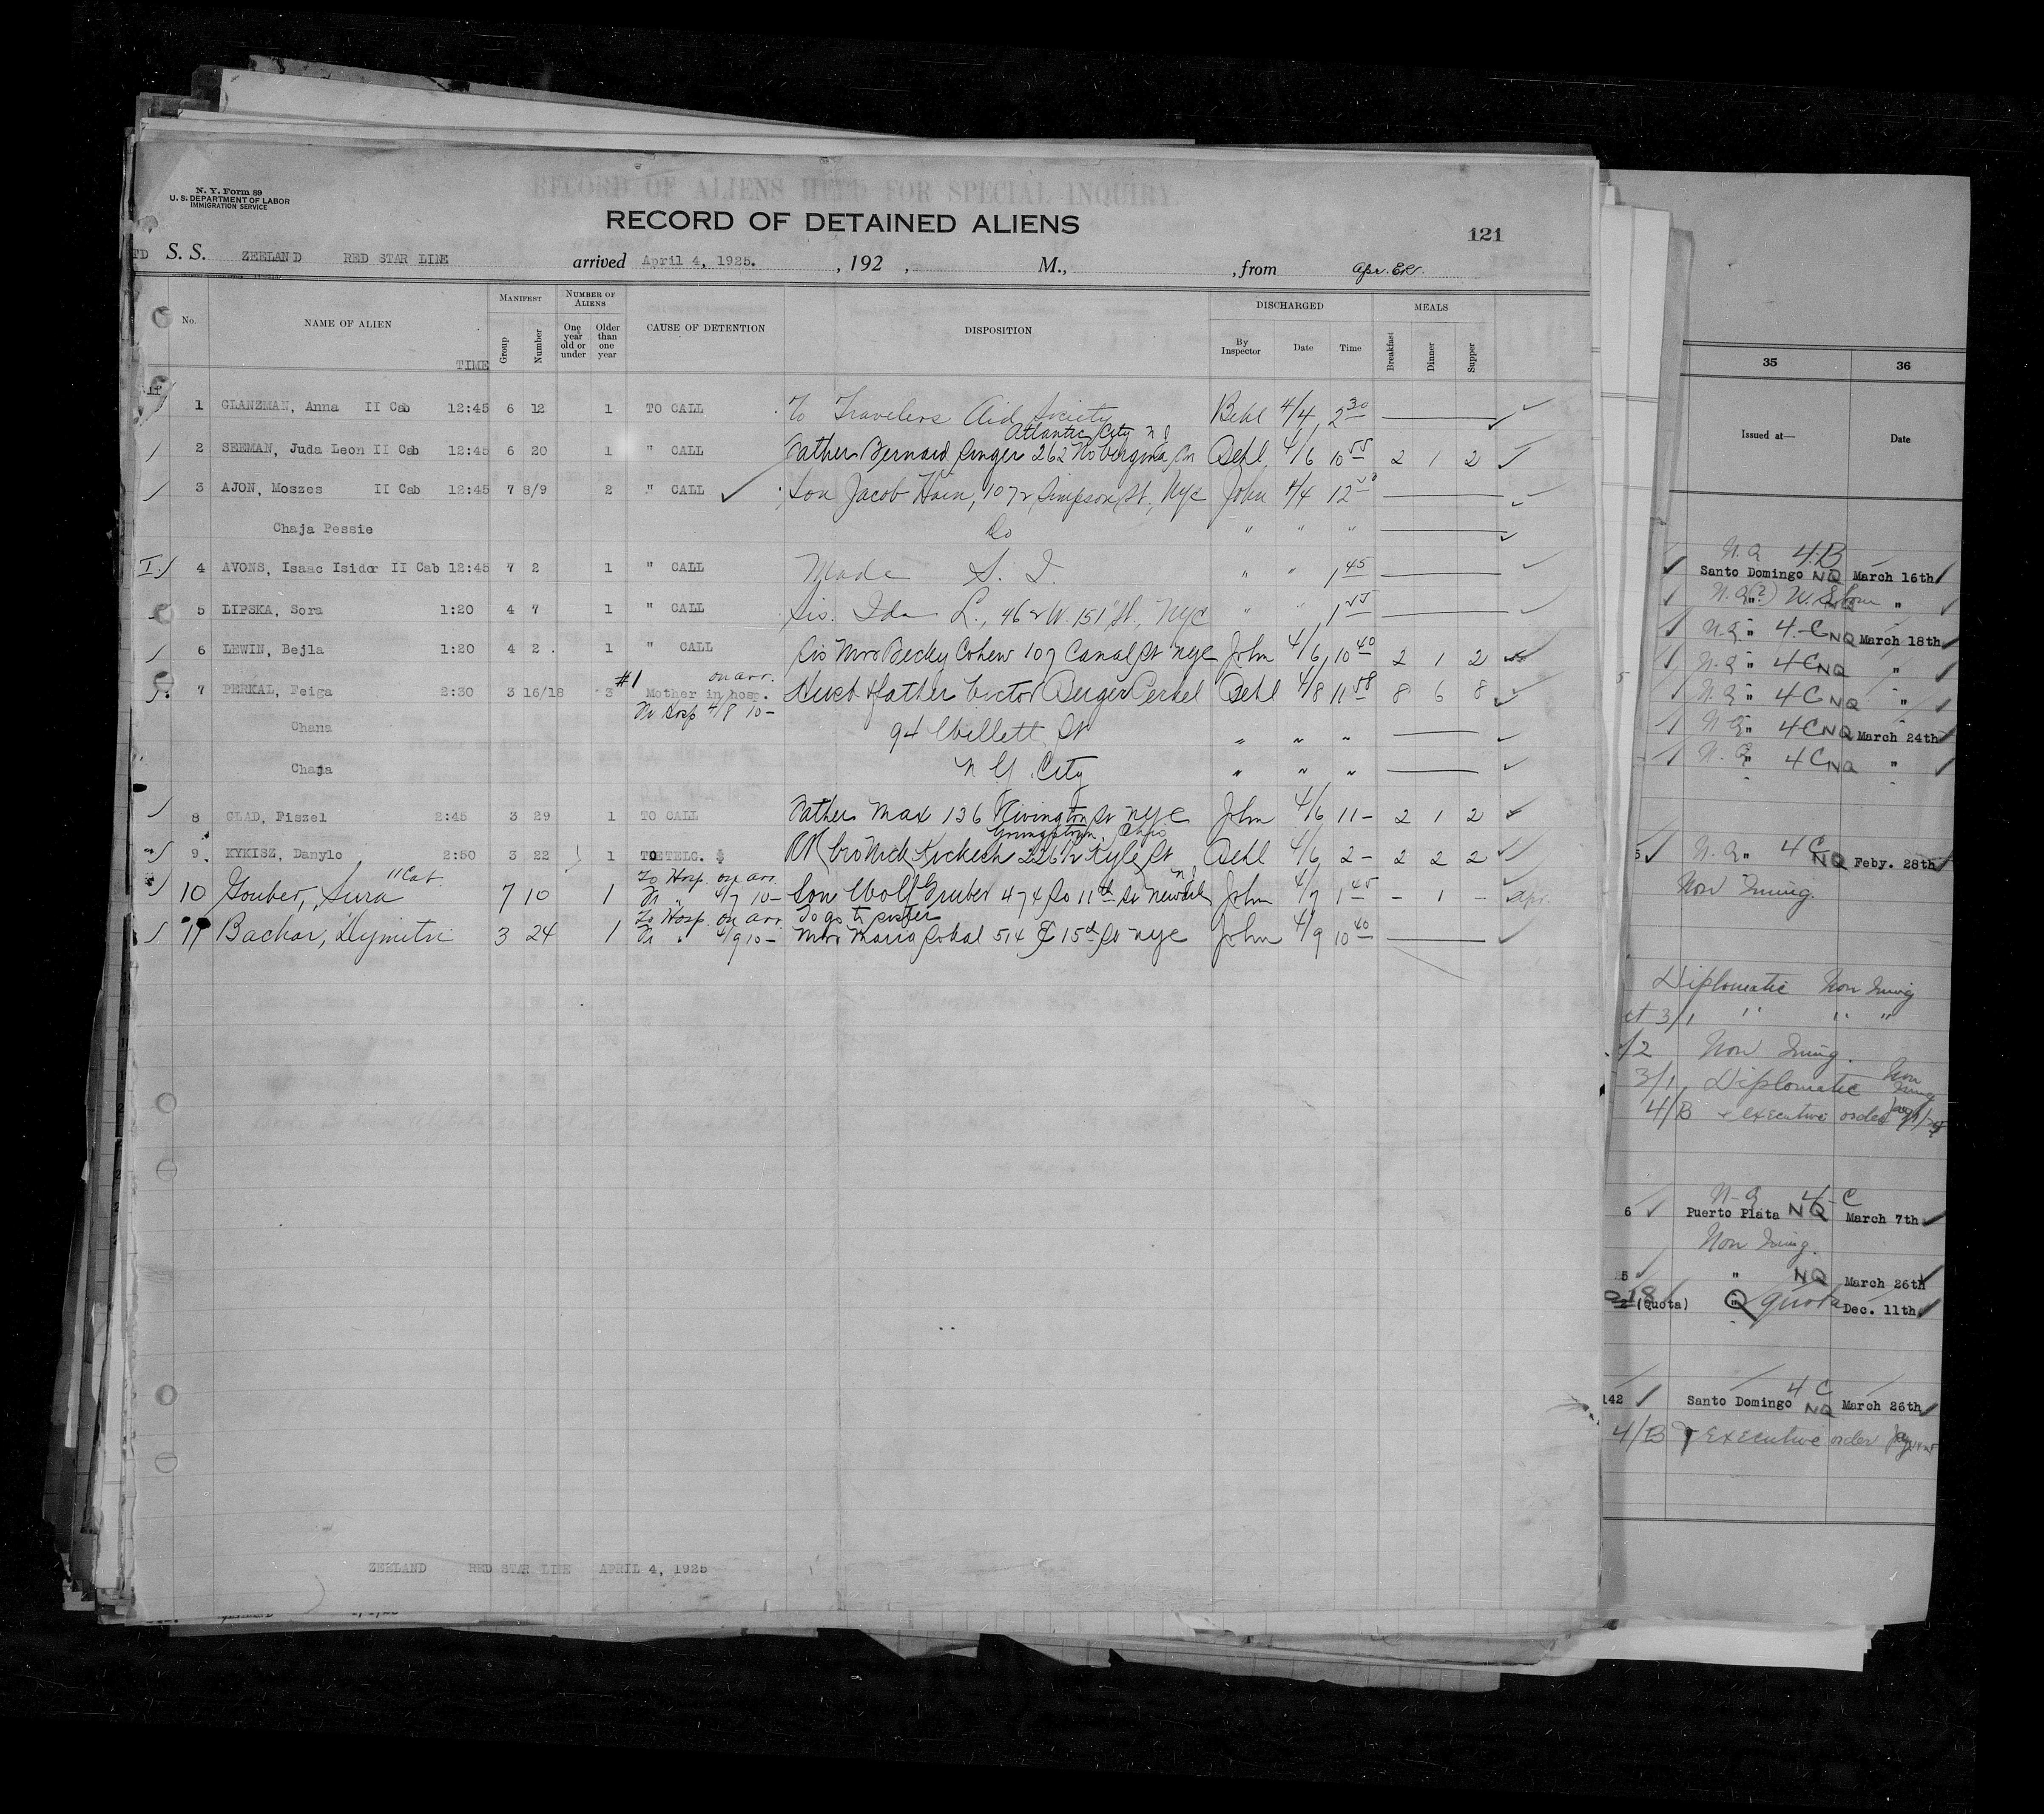 N. Y. Form 89
U. S. DEPARTMENT OF LABOR
IMMIGRATION SERVICE
RECORD OF ALIENS HELD FOR SPECIAL INQUIRY.
RECORD OF DETAINED ALIENS
121
S. S. ZEELAND RED STAR LINE arrived April 4, 1925. , 192 , M., , from
No. NAME OF ALIEN TIME MANIFEST Group Number NUMBER OF ALIENS One year old or under Older than one year CAUSE OF DETENTION DISPOSITION DISCHARGED By Inspector Date Time MEALS Breakfast Dinner Supper
1 GLANZMAN, Anna II Cab 12:45 6 12 1 TO CALL To Travelers Aid Society Behl 4/4 2 30
Atlantic City N J
2 SEEMAN, Juda Leon II Cab 12:45 6 20 1 " CALL Father Bernard Singer 262 No Virginia Behl 4/6 10 55 2 1 2
3 AJON, Moszes II Cab 12:45 7 8/9 2 " CALL Son Jacob 1072 Simpson St, NYC John 4/4 12
Chaja Pessie Do " " "
4 AVONS, Isaac Isidor II Cab 12:45 7 2 1 " CALL Made S. I. " " 1 45
5 LIPSKA, Sora 1:20 4 7 1 " CALL Sis. Ida L., 462 W. 151 St., NYC " " 1 55
6 LEWIN, Bejla 1:20 4 2 1 " CALL Sis Mrs Becky Cohen 107 Canal St NYC John 4/6 10 40 2 1 2
#1 on arr.
7 PERKAL, Feiga 2:30 3 16/18 3 Mother in hosp. Husb & father Victor Berger Perkel Behl 4/8 11 58 8 6 8
Fr Hosp 4/8 10-
Chana 94 Willett St " " "
Chaja N Y. City " " "
8 GLAD, Fiszel 2:45 3 29 1 TO CALL Father Max 136 Rivington St NYC John 4/6 11- 2 1 2
Youngstown, Ohio
9 KYKISZ, Danylo 2:50 3 22 1 TO TELG. $ RR Bro Nick Kyle St Behl 4/6 2- 2 2 2
II Cab To Hosp. on arr. N J
10 Gouber, Sura 7 10 1 Fr " 4/7 10- Son Wolf Gruber 474 So 11th St Newark John 4/7 1 45 - 1 -
To Hosp. on arr To go to sister
11 Bachar, Dymitri 3 24 1 Fr " 4/9 10- Mrs Maria Sokal 514 E 15th St NYC John 4/9 10 40
ZEELAND RED STAR LINE APRIL 4, 1925
35 36
Issued at— Date
N. Q 4.B
Santo Domingo NQ March 16th
N. Q (?) "
N. Q. " 4-C NQ March 18th
N. Q " 4C NQ "
N. Q " 4C NQ "
N Q " 4C NQ March 24th
N. Q " 4C NQ "
N. Q. " 4C NQ Feby. 28th
Non Immig.
Diplomatic Non Immig
3/1 " " "
/2 Non Immig.
3/1, Diplomatic Non Immig
4/B executive order
N-Q 4-C
6 Puerto Plata NQ March 7th
Non Immig.
" NQ March 26th
(Quota) " Q quota Dec. 11th
4 C
142 Santo Domingo NQ March 26th
4/B executive order